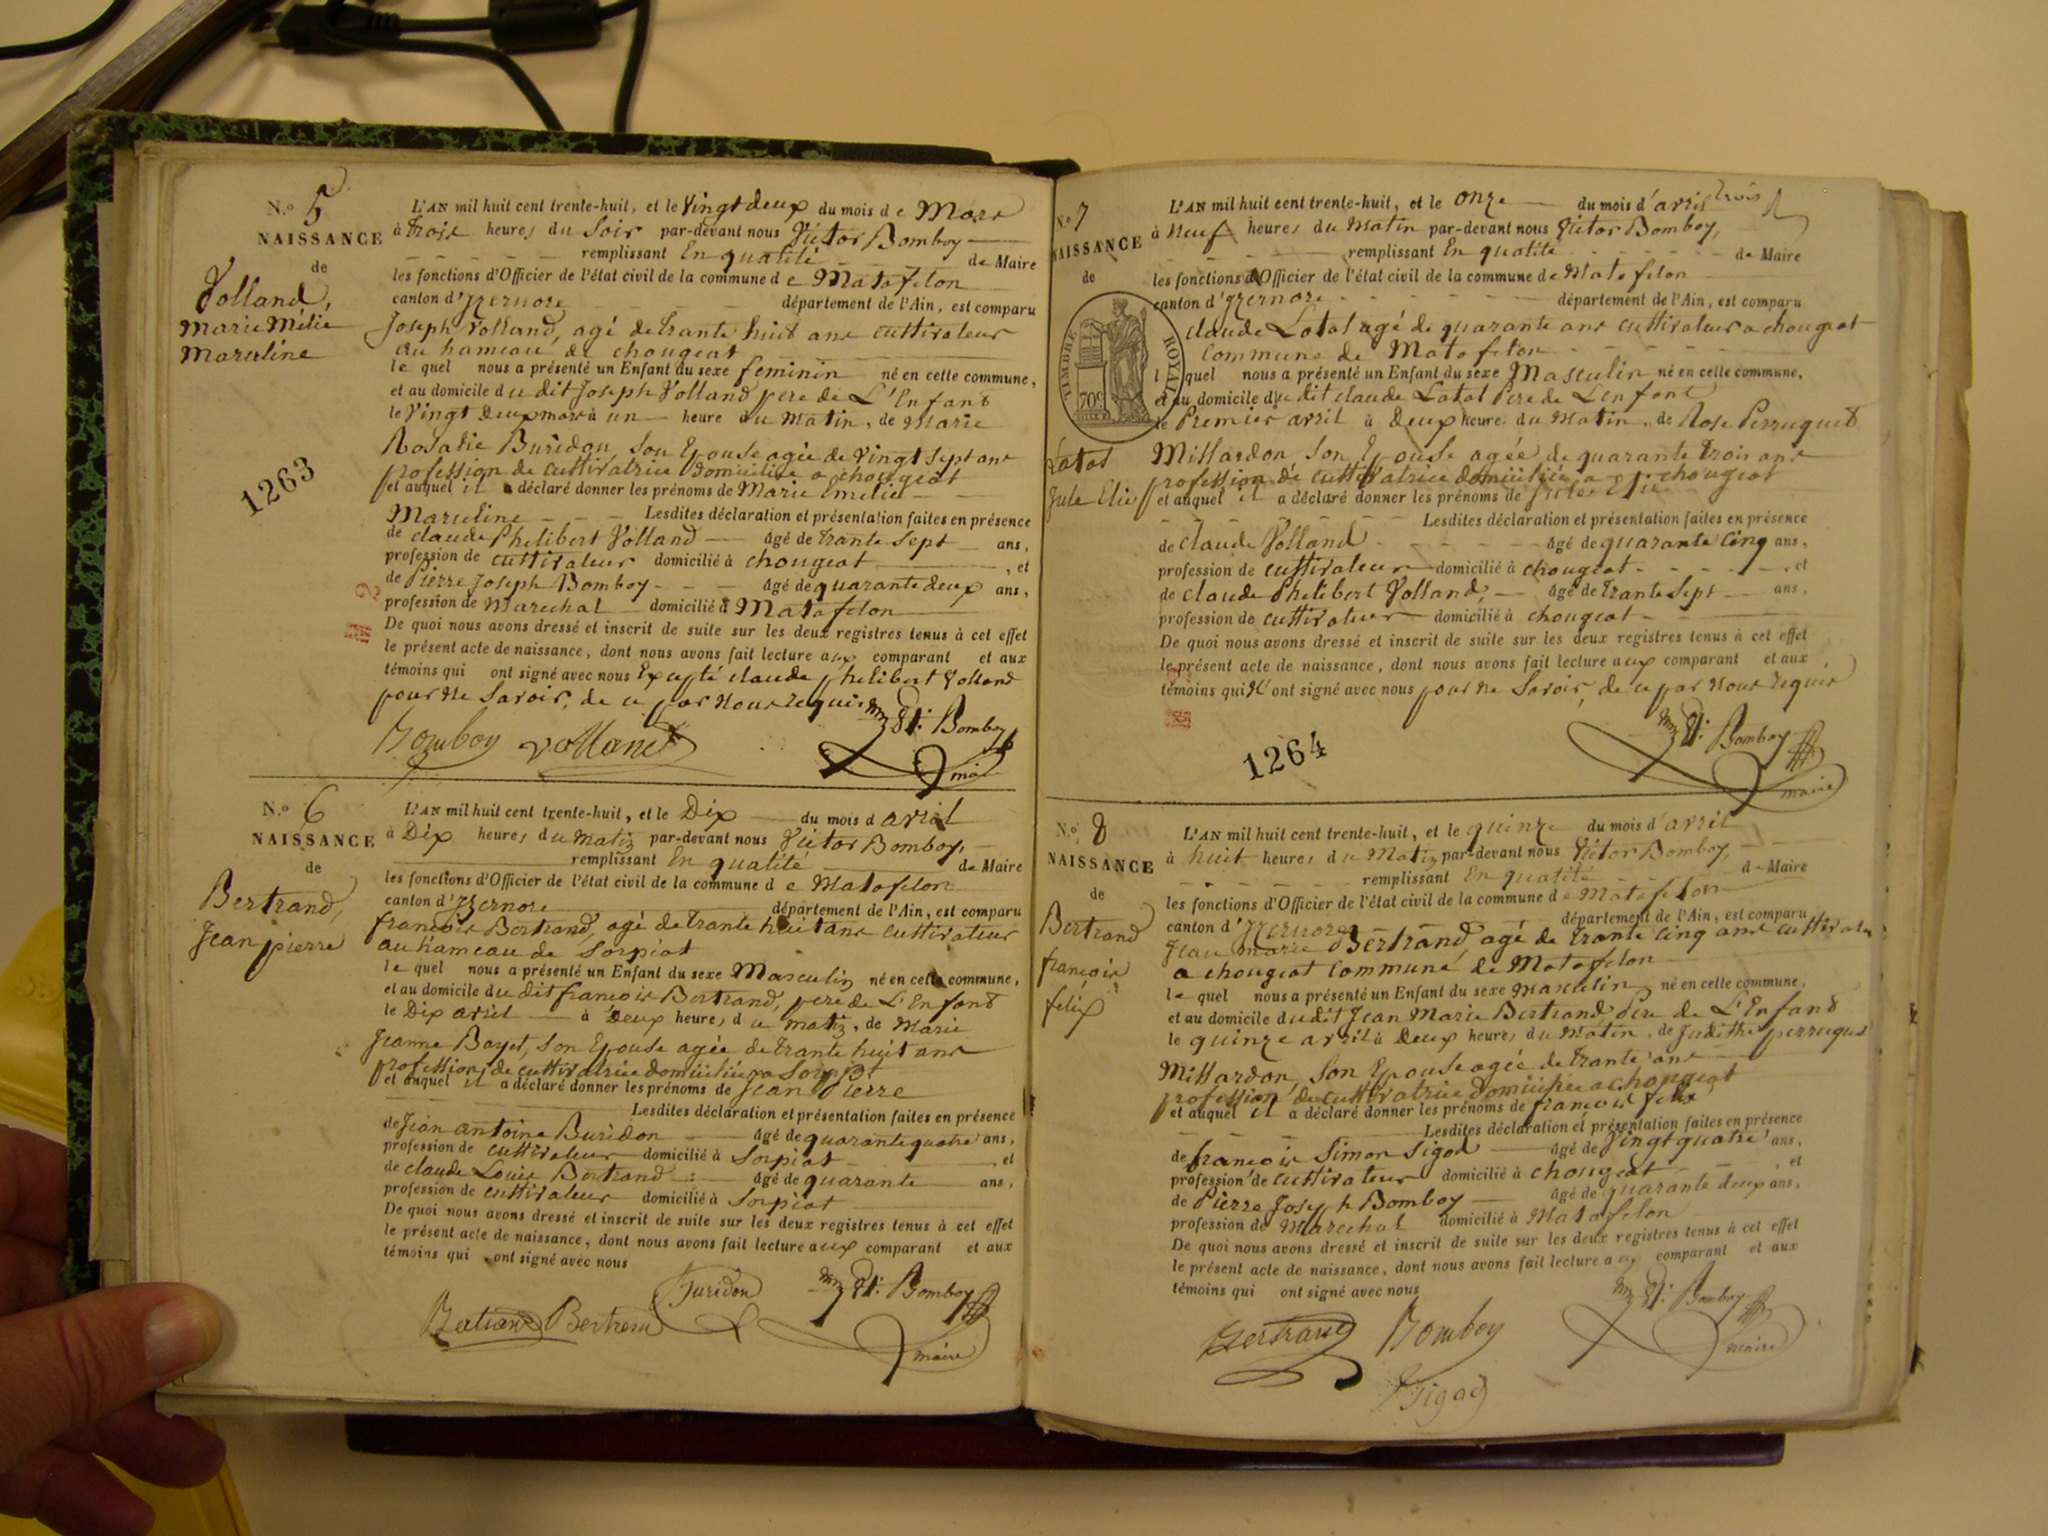 N.º 5
NAISSANCE
de
Volland,
Marie Mélie
Marceline
1263
L'AN mil huit cent trente-huit, et le Vingt deux du mois d e Mars
à Trois heures du Soir par-devant nous Victor Bomboy
remplissant En qualité de Maire
les fonctions d'Officier de l'état civil de la commune d e Matafelon
canton d'Yzernore département de l'Ain, est comparu
Joseph Volland, agé de trante huit ans cultivateur
au hameau de chougeat
le quel nous a présenté un Enfant du sexe feminin né en cette commune,
et au domicile du dit Joseph Volland pere de L'Enfant
le Vingt Deux mars à un heure du Matin, de Marie
Rosalie Buridon, Son Epouse agée de Vingt Sept ans
profession de cultivatrice domiciliée a chougeat
et auquel il a déclaré donner les prénoms de Marie Emelie
Marceline Lesdites déclaration et présentation faites en présence
de claude Phelibert Volland âgé de trante Sept ans,
profession de cultivateur domicilié à chougeat , et
de Pierre Joseph Bomboy âgé de quarante deux ans,
profession de Marechal domicilié à Matafelon
De quoi nous avons dressé et inscrit de suite sur les deux registres tenus à cet effet
le présent acte de naissance, dont nous avons fait lecture aux comparant et aux
témoins qui ont signé avec nous Excepté claude phelibert Volland
pour ne Savoir, de ce par Nous requis
Bomboy Volland Bomboy
maire
N.º 6
NAISSANCE
de
Bertrand,
Jean pierre
L'AN mil huit cent trente-huit, et le Dix du mois d avril
à Dix heures du matin par-devant nous Victor Bomboy,
remplissant En qualité de Maire
les fonctions d'Officier de l'état civil de la commune d e Matafelon
canton d'Yzernore département de l'Ain, est comparu
francois Bertrand, agé de trante huit ans cultivateur
au hameau de Sorpiat
le quel nous a présenté un Enfant du sexe Masculin né en cette commune,
et au domicile du dit francois Bertrand, pere de L'Enfant
le Dix avril à Deux heures du matin, de Marie
Jeanne Bayet, Son Epouse agée de trante huit ans
profession de cultivatrice domiciliée a Sorpiat
et auquel il a déclaré donner les prénoms de Jean Pierre
Lesdites déclaration et présentation faites en présence
de Jean antoine Buridon âgé de quarante quatre ans,
profession de cultivateur domicilié à Sorpiat , et
de claude Louis Bertrand âgé de quarante ans,
profession de cultivateur domicilié à Sorpiat
De quoi nous avons dressé et inscrit de suite sur les deux registres tenus à cet effet
le présent acte de naissance, dont nous avons fait lecture aux comparant et aux
témoins qui ont signé avec nous
Buridon Bomboy
Bertrand Bertrand
maire
trois
N.º 7
NAISSANCE
de
TIMBRE ROYAL
70c
Latal
Jule Elie
L'AN mil huit cent trente-huit, et le onze du mois d'avril
à Neuf heures du Matin par-devant nous Victor Bomboy,
remplissant En qualité de Maire
les fonctions d'Officier de l'état civil de la commune de Matafelon
canton d'Yzernore département de l'Ain, est comparu
claude Latal agé de quarante ans cultivateur a chougeat
commune de Matafelon
l quel nous a présenté un Enfant du sexe Masculin né en cette commune,
et au domicile du dit claude Latal Pere de L'enfant
le Premier avril à Deux heures du Matin, de Rose Perruquet
Millardon, Son Epouse agée de quarante trois ans
profession de cultivatrice domiciliée a chougeat
et auquel il a déclaré donner les prénoms de Jules Elie
Lesdites déclaration et présentation faites en présence
de claude Volland âgé de quarante cinq ans,
profession de cultivateur domicilié à chougeat , et
de claude Phelibert Volland, âgé de trante Sept ans,
profession de cultivateur domicilié à chougeat
De quoi nous avons dressé et inscrit de suite sur les deux registres tenus à cet effet
le présent acte de naissance, dont nous avons fait lecture aux comparant et aux
témoins qui N'ont signé avec nous pour ne Savoir, de ce par Nous requis
Bomboy
maire
1264
N.º 8
NAISSANCE
de
Bertrand
francois
felix
L'AN mil huit cent trente-huit, et le quinze du mois d'avril
à huit heures du Matin par-devant nous Victor Bomboy,
remplissant En qualité de Maire
les fonctions d'Officier de l'état civil de la commune de Matafelon
canton d'Yzernore département de l'Ain, est comparu
Jean Marie Bertrand, agé de trante cinq ans cultivateur
a chougeat commune de Matafelon
le quel nous a présenté un Enfant du sexe Masculin né en cette commune,
et au domicile du dit Jean Marie Bertrand Pere de L'Enfant
le quinze avril à Deux heures du Matin, de Judithe perruquet
Millardon, Son Epouse agée de trante ans
profession de cultivatrice domiciliée a chougeat
et auquel il a déclaré donner les prénoms de francois felix
Lesdites déclaration et présentation faites en présence
de francois Simon Sigod âgé de Vingt quatre ans,
profession de cultivateur domicilié à chougeat , et
de Pierre Joseph Bomboy âgé de quarante deux ans,
profession de Marechal domicilié à Matafelon
De quoi nous avons dressé et inscrit de suite sur les deux registres tenus à cet effet
le présent acte de naissance, dont nous avons fait lecture aux comparant et aux
témoins qui ont signé avec nous
Bertrand Bomboy Bomboy
maire
Sigod